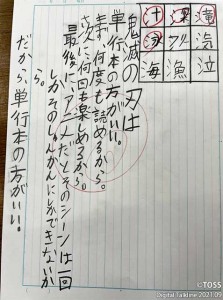 鬼滅の刃は
単行本の方がいい。
まず、何度も読めるから。
次に、何回も楽しめるから。
最後に、アニメだとそのシーンは一回
しかそのしゅんかんにしかできないか
ら。
だから、単行本の方がいい。
汁
泳
海
漁
泣
©TOSS
Digital Talkline 2021.09